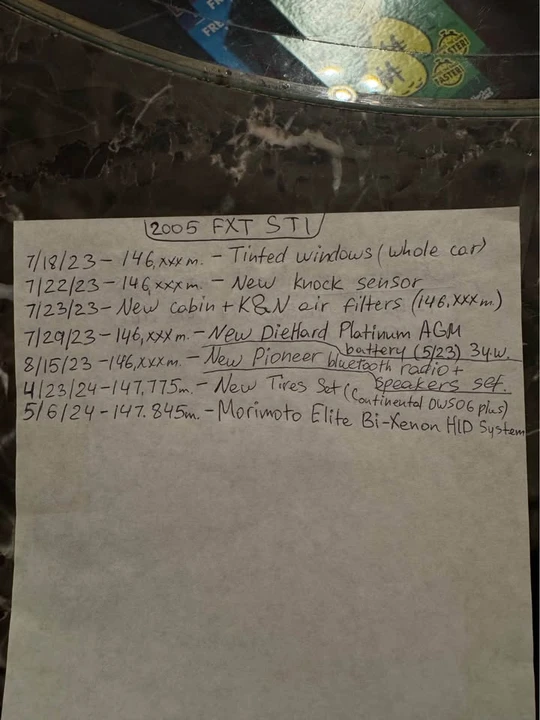 FR
FRE
FASTER!
FASTER!
2005 FXT STI
7/18/23 - 146,xxx m. - Tinted windows (whole car)
7/22/23 - 146,xxx m. - New knock sensor
7/23/23 - New cabin + K&N air filters (146,xxx m)
7/29/23 - 146,xxx m. - New DieHard Platinum AGM
battery (5/23) 3y.w.
8/15/23 - 146,xxx m. - New Pioneer bluetooth radio +
speakers set.
4/23/24 - 147,775m. - New Tires Set (Continental DWS06 plus)
5/6/24 - 147.845m. - Morimoto Elite Bi-Xenon HID System